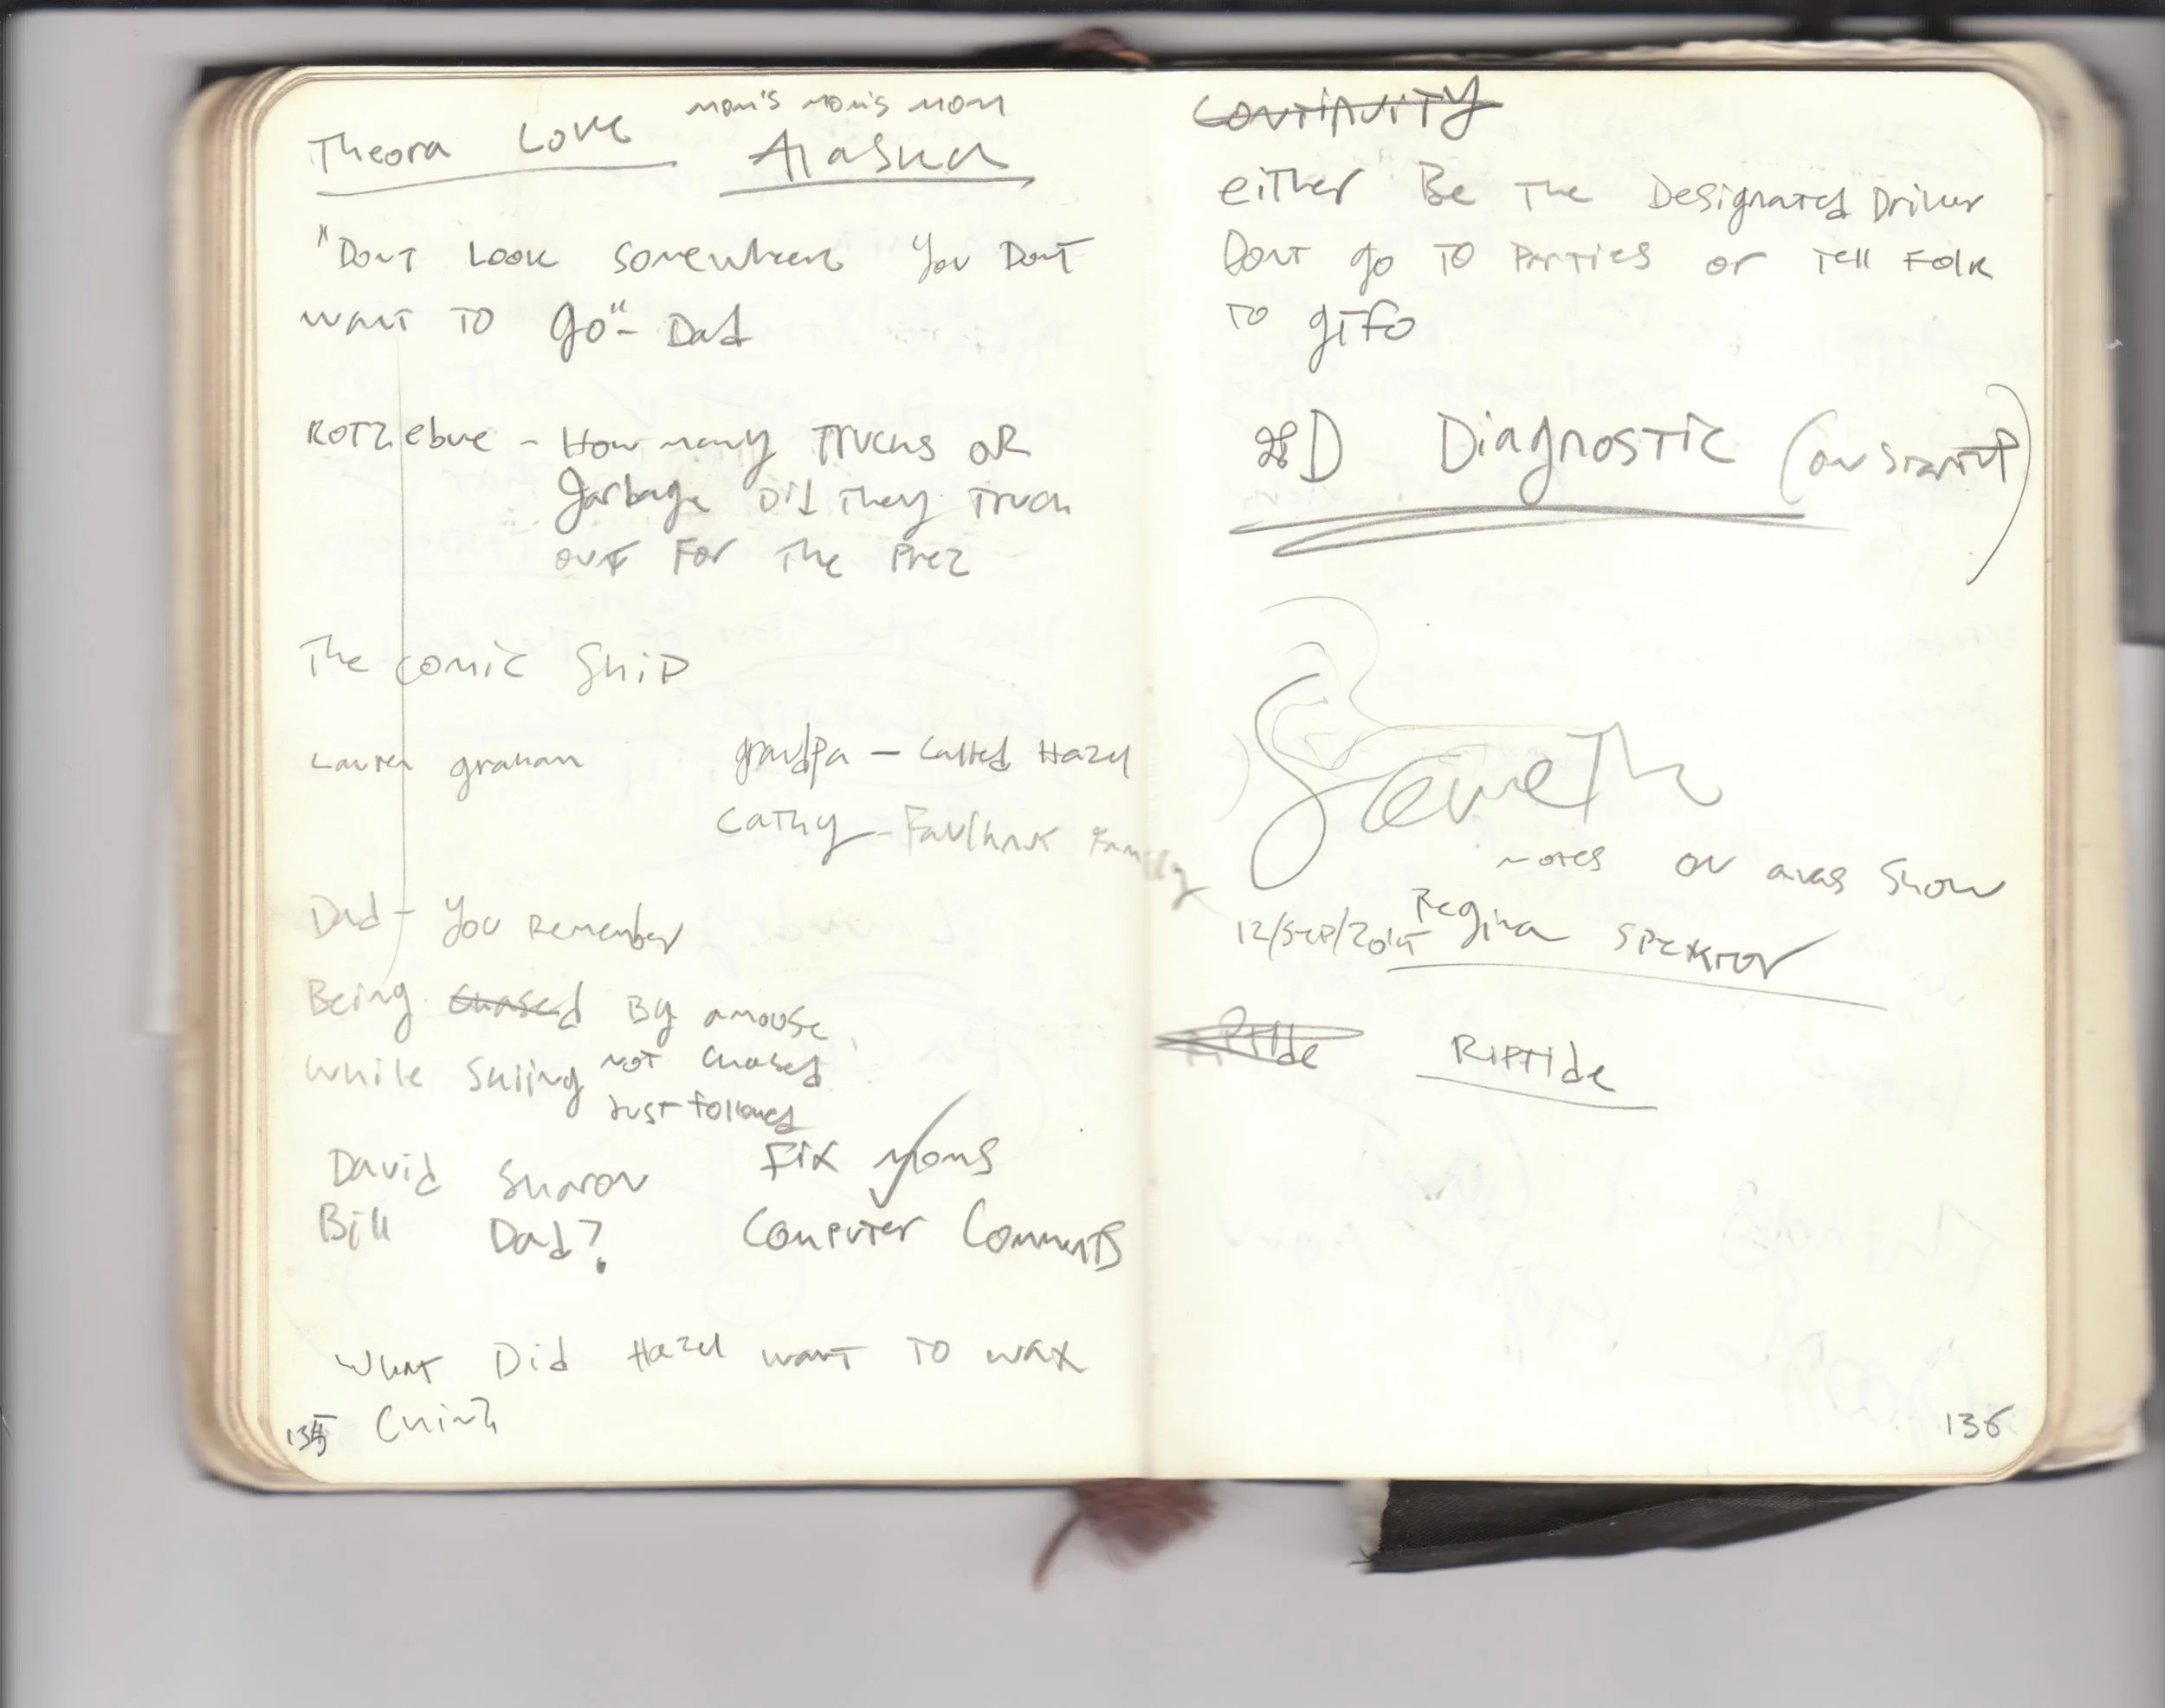 mom's mom's mom
Theora Love Alaska
"Dont Look somewhere you Dont
want TO go" - Dad
KOTZebue - How many Trucks OR
garbage Did They Truck
out For The Prez
The comic Ship
Lauren graham
grandpa - called Hazel
Cathy - Family
Dad - You Remember
Being chased By a moose
while Skiing not chased
Just followed
David Sharon
Bill Dad?
Fix moms
Computer Comments
What Did Hazel want TO wax
135
CONTINUITY
either Be The Designated Driver
Dont go TO Parties or Tell Folk
TO gtfo
D Diagnostic (on startup)
notes on show
12/Sep/2015 Regina Spektor
Riptide
136